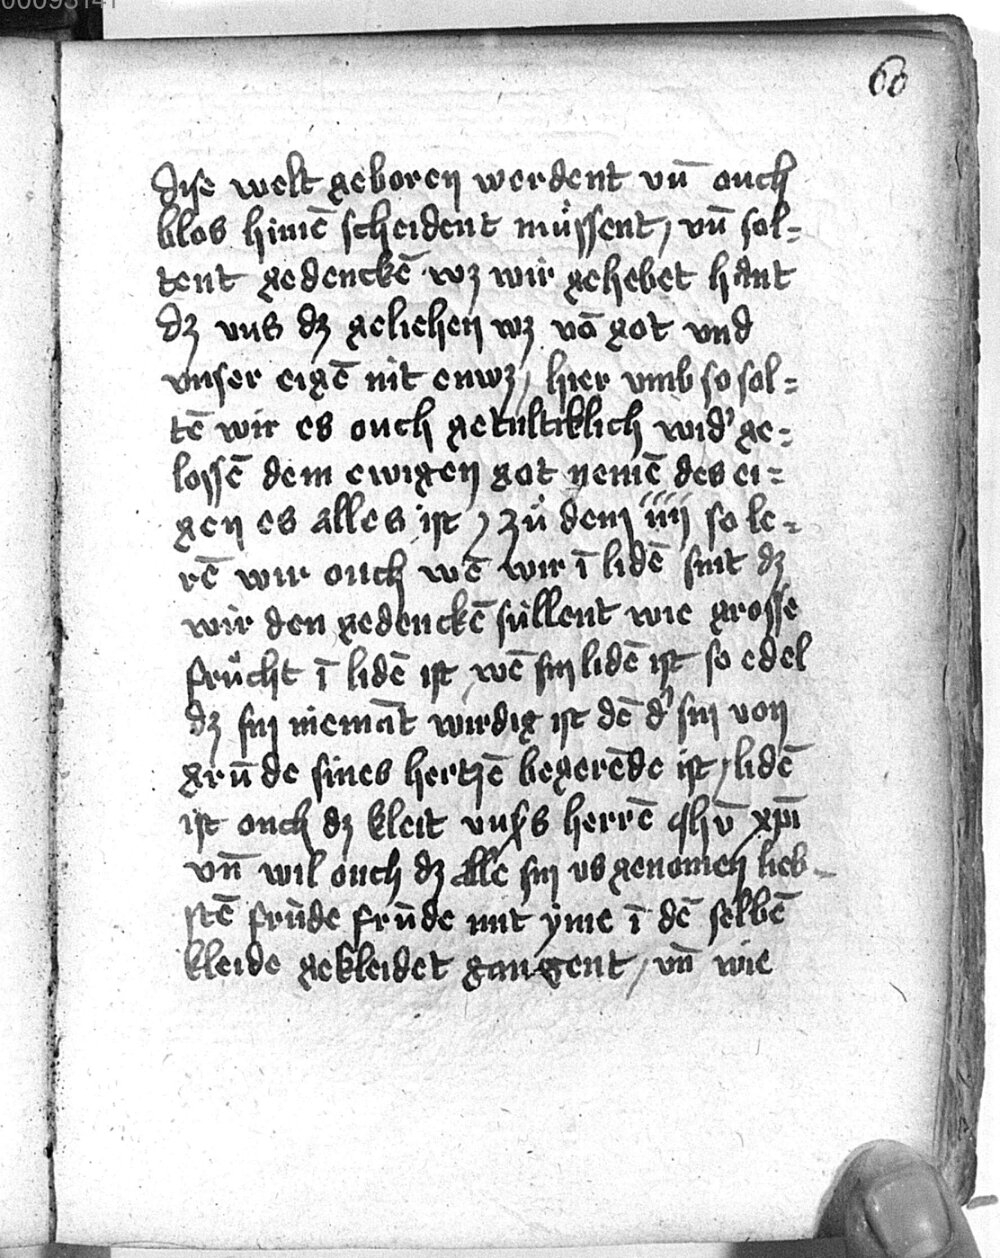 00095141
60
dise welt geboren werdent vn̄ ouch
blos hinnē scheident mu̍ssent / vn̄ sol=
tent gedenckē wz wir gehebet hant
dz vns dz gelichen wz vō got vnd
vnser eigē nit enwz / hier vmb so sol=
tē wir es ouch getultiklich wid' ge=
lossē dem ewigen got nemē des ei=
gen es alles ist / zů dem iiij so le=
rē wir ouch wē wir ī lidē sint dz
wir den gedenckē süllent wie grosse
frücht ī lidē ist / wē sin lidē ist so edel
dz sin niemāt wirdig ist dē d' sin von
grūde sines hertzē begerēde ist / lidē
ist ouch dz kleit vnsers herrē ihū xpī
vn̄ wil ouch dz alle sin vs genomen lieb=
stē frūde frūde mit yme ī dē selbē
kleide gekleidet gangent / vn̄ wie